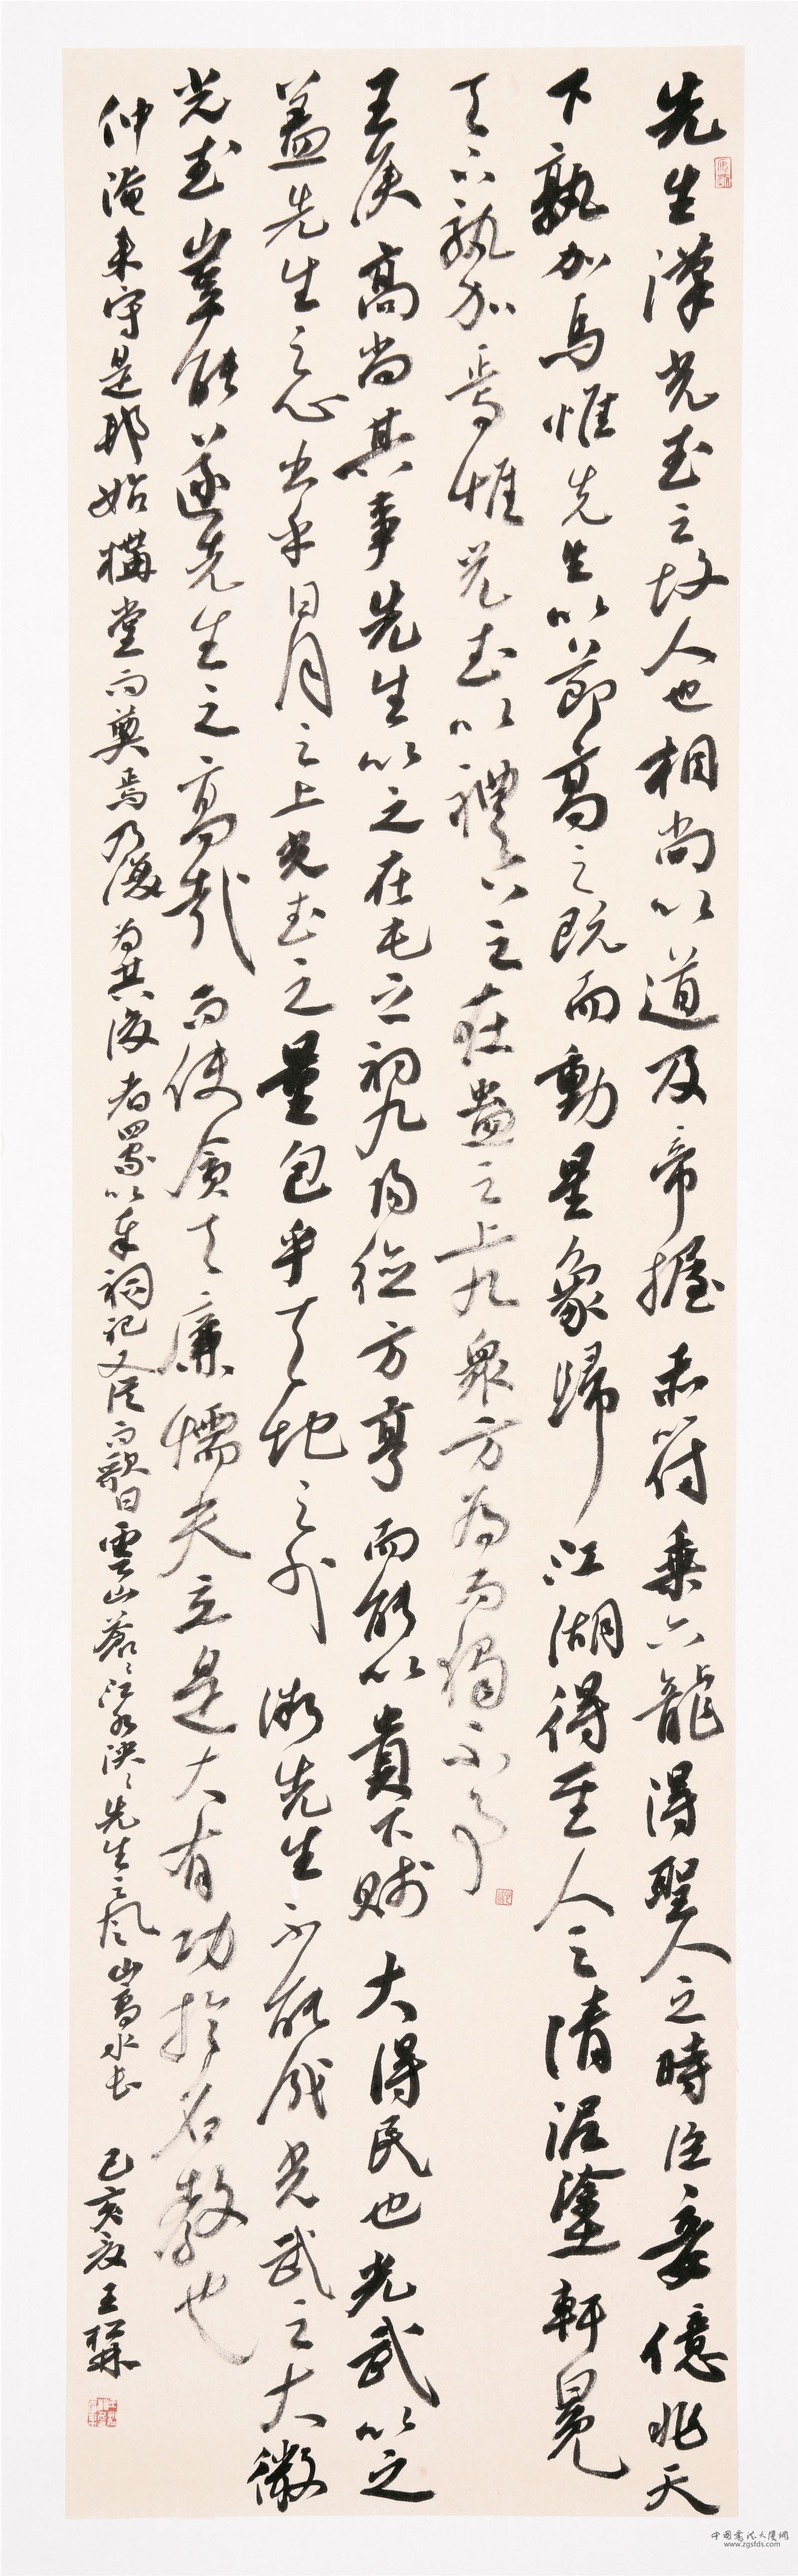 先生漢光武之故人也相尚以道及帝握赤符乘六龍得聖人之時臣妾億兆天
下孰加焉惟先生以節高之既而動星象歸江湖得聖人之清泥塗軒冕
天下孰加焉惟光武以禮下之在蠱之上九眾方有為而獨不事
王侯高尚其事先生以之在屯之初九陽德方亨而能以貴下賤大得民也光武以之
蓋先生之心出乎日月之上光武之量包乎天地之外微先生不能成光武之大微
光武豈能遂先生之高哉而使貪夫廉懦夫立是大有功於名教也
仲淹來守是邦始構堂而奠焉乃復為其後者四家以奉祠祀又從而歌曰雲山蒼〻江水泱〻先生之風山高水長
己亥夏王
中國書法大廈網
www.zgsfds.com